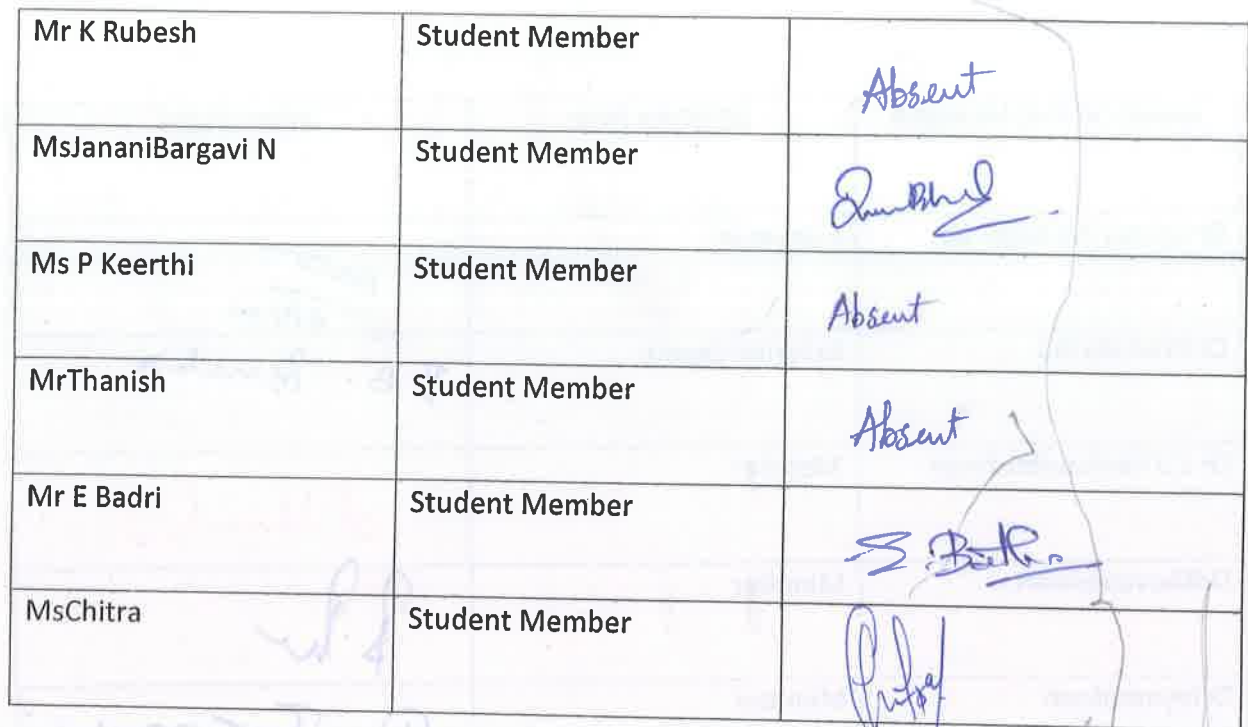 Mr K Rubesh Student Member Absent
MsJananiBargavi N Student Member
Ms P Keerthi Student Member Absent
MrThanish Student Member Absent
Mr E Badri Student Member
MsChitra Student Member